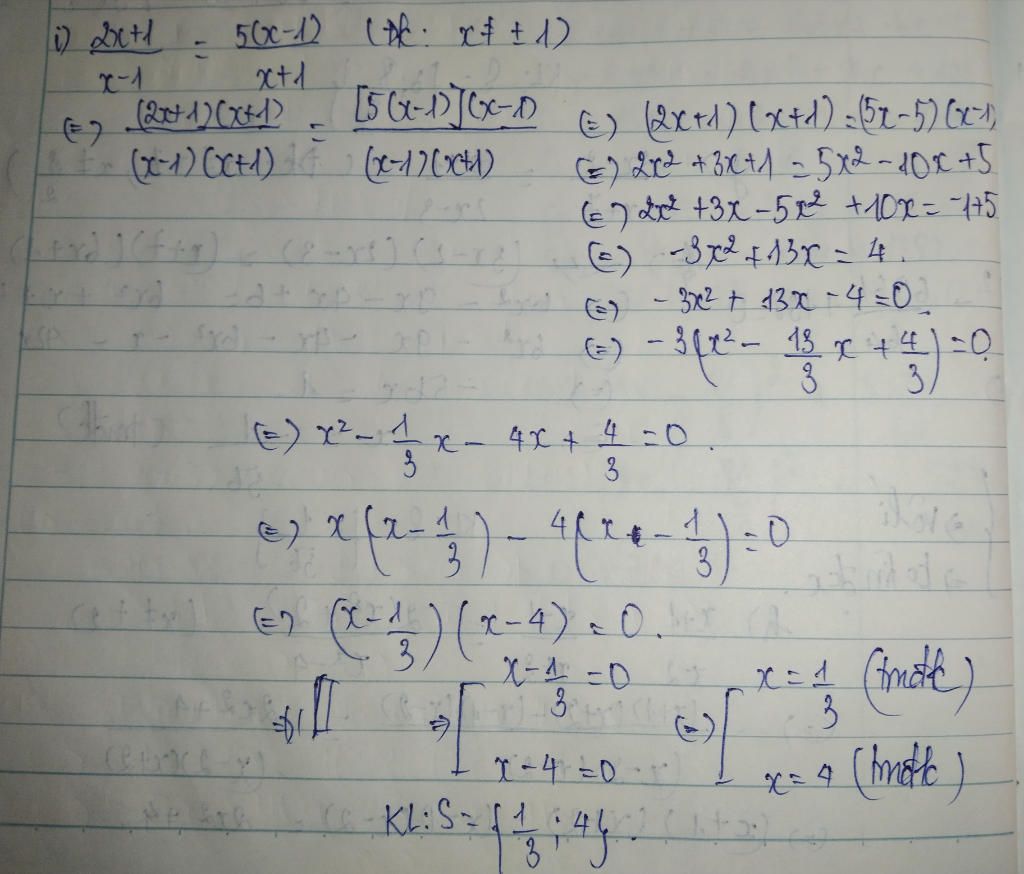 i) (2x+1)/(x-1) = 5(x-1)/(x+1) (đk: x ≠ ±1)
(=) (2x+1)(x+1)/(x-1)(x+1) = [5(x-1)](x-1)/(x-1)(x+1) (=) (2x+1)(x+1)=(5x-5)(x-1)
(=) 2x² + 3x + 1 = 5x² - 10x + 5
(=) 2x² + 3x - 5x² + 10x = -1+5
(=) -3x² + 13x = 4.
(=) -3x² + 13x - 4 = 0.
(=) -3(x² - 13/3 x + 4/3) = 0
(=) x² - 1/3 x - 4x + 4/3 = 0.
(=) x(x - 1/3) - 4(x - 1/3) = 0
(=) (x - 1/3)(x - 4) = 0.
=> [ x - 1/3 = 0 (=) [ x = 1/3 (tmđk)
x - 4 = 0 x = 4 (tmđk)
KL: S = {1/3; 4}.